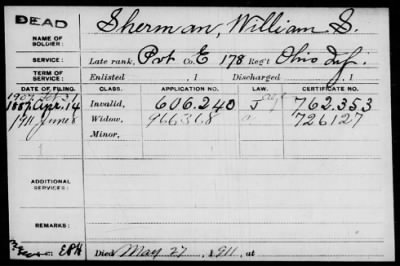 DEAD
NAME OF SOLDIER: Sherman, William S.
SERVICE: Late rank, Pvt Co. E 178 Reg't Ohio Inf.
TERM OF SERVICE: Enlisted , 1 Discharged , 1
DATE OF FILING. CLASS. APPLICATION NO. LAW. CERTIFICATE NO.
1907
1887 Apr. 14 Invalid, 606.240 J 762.353
1911 June 8 Widow, 966368 726127
Minor,
ADDITIONAL SERVICES:
REMARKS:
Died May 27, 1911, at